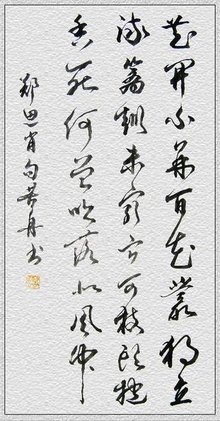 花開不并百花叢獨立
疏篱趣未窮宁可枝頭抱
香死何曾吹落北風中
郑思肖句书